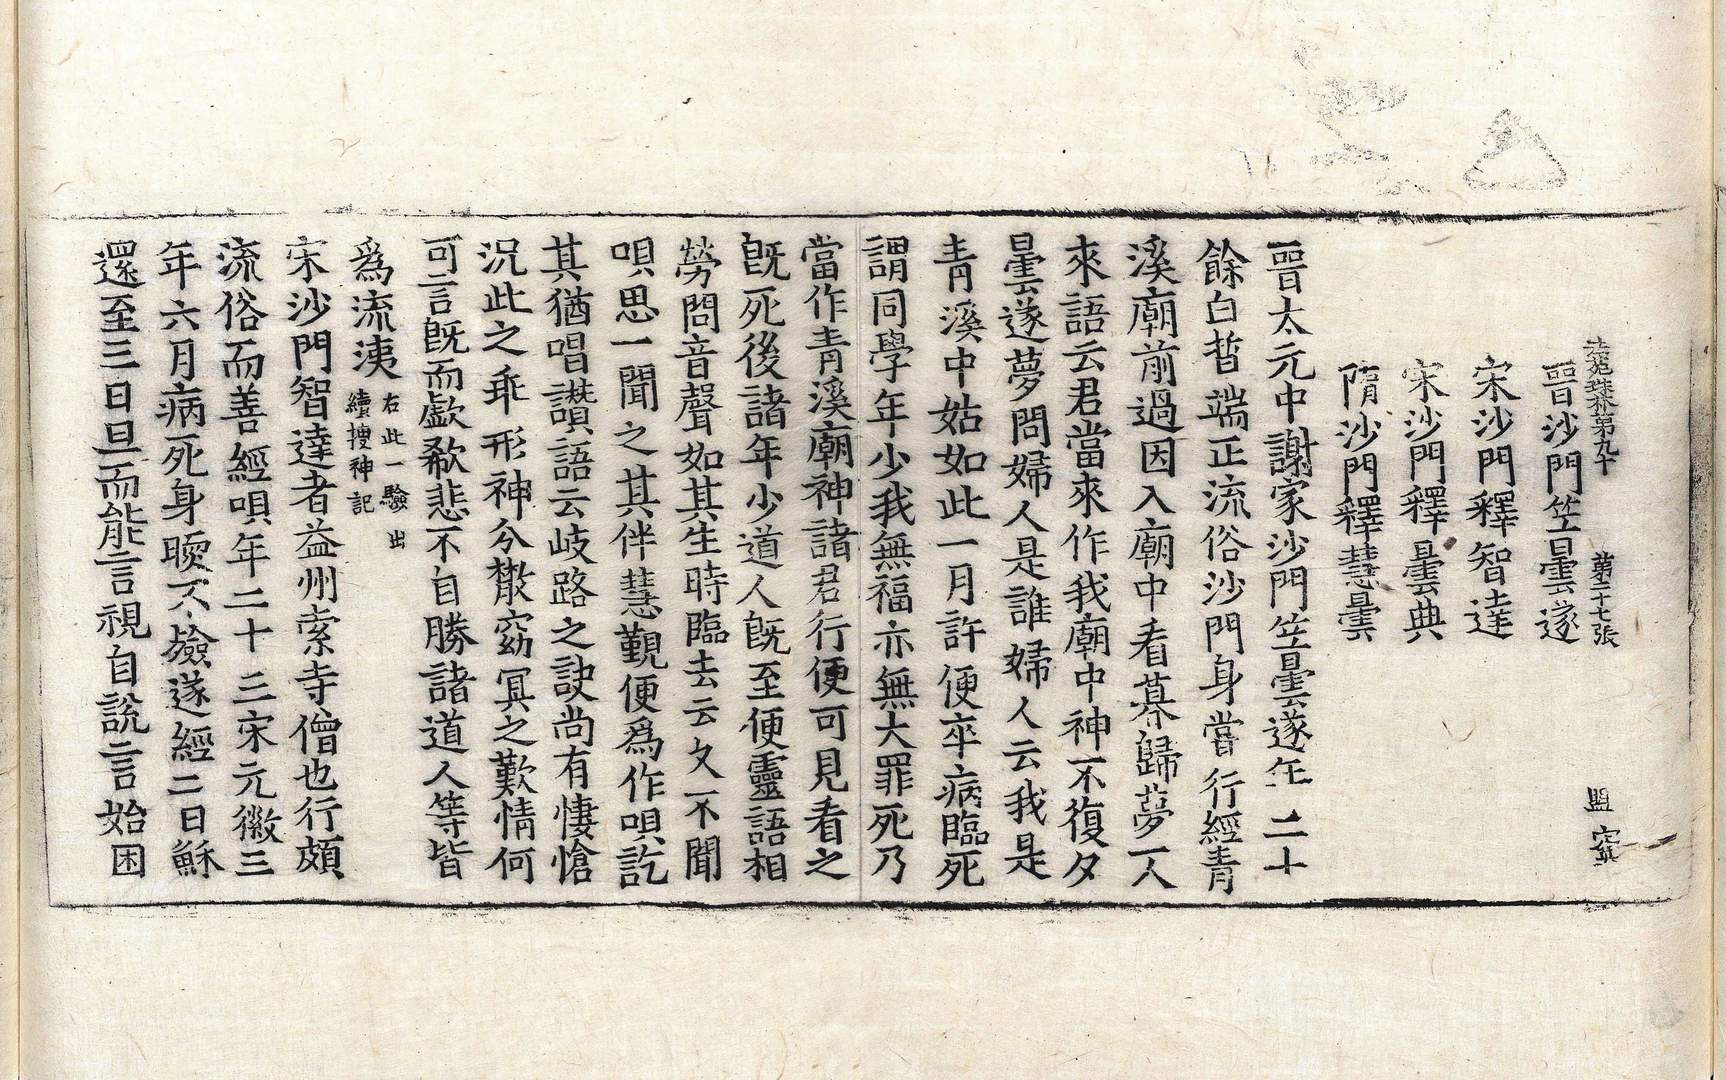 法苑珠林第九十 第二十七張 盟 
晉沙門竺曇遂
宋沙門釋智達
宋沙門釋曇典
隋沙門釋慧曇
晉太元中謝家沙門竺曇遂年二十
餘白晢端正流俗沙門身嘗行經青
溪廟前過因入廟中看暮歸夢一人
來語云君當來作我廟中神不復夕
曇遂夢問婦人是誰婦人云我是
青溪中姑如此一月許便卒病臨死
謂同學年少我無福亦無大罪死乃
當作青溪廟神諸君行便可見看之
旣死後諸年少道人旣至便靈語相
勞問音聲如其生時臨去云久不聞
唄思一聞之其伴慧覲便爲作唄訖
其猶唱讃語云歧路之訣尚有悽愴
況此之乖形神分㪚窈冥之歎情何
可言旣而歔欷悲不自勝諸道人等皆
爲流洟 右此一驗出續搜神記
宋沙門智達者益州索寺僧也行頗
流俗而善經唄年二十三宋元徽三
年六月病死身暖不殮遂經二日穌
還至三日旦而能言視自說言始困